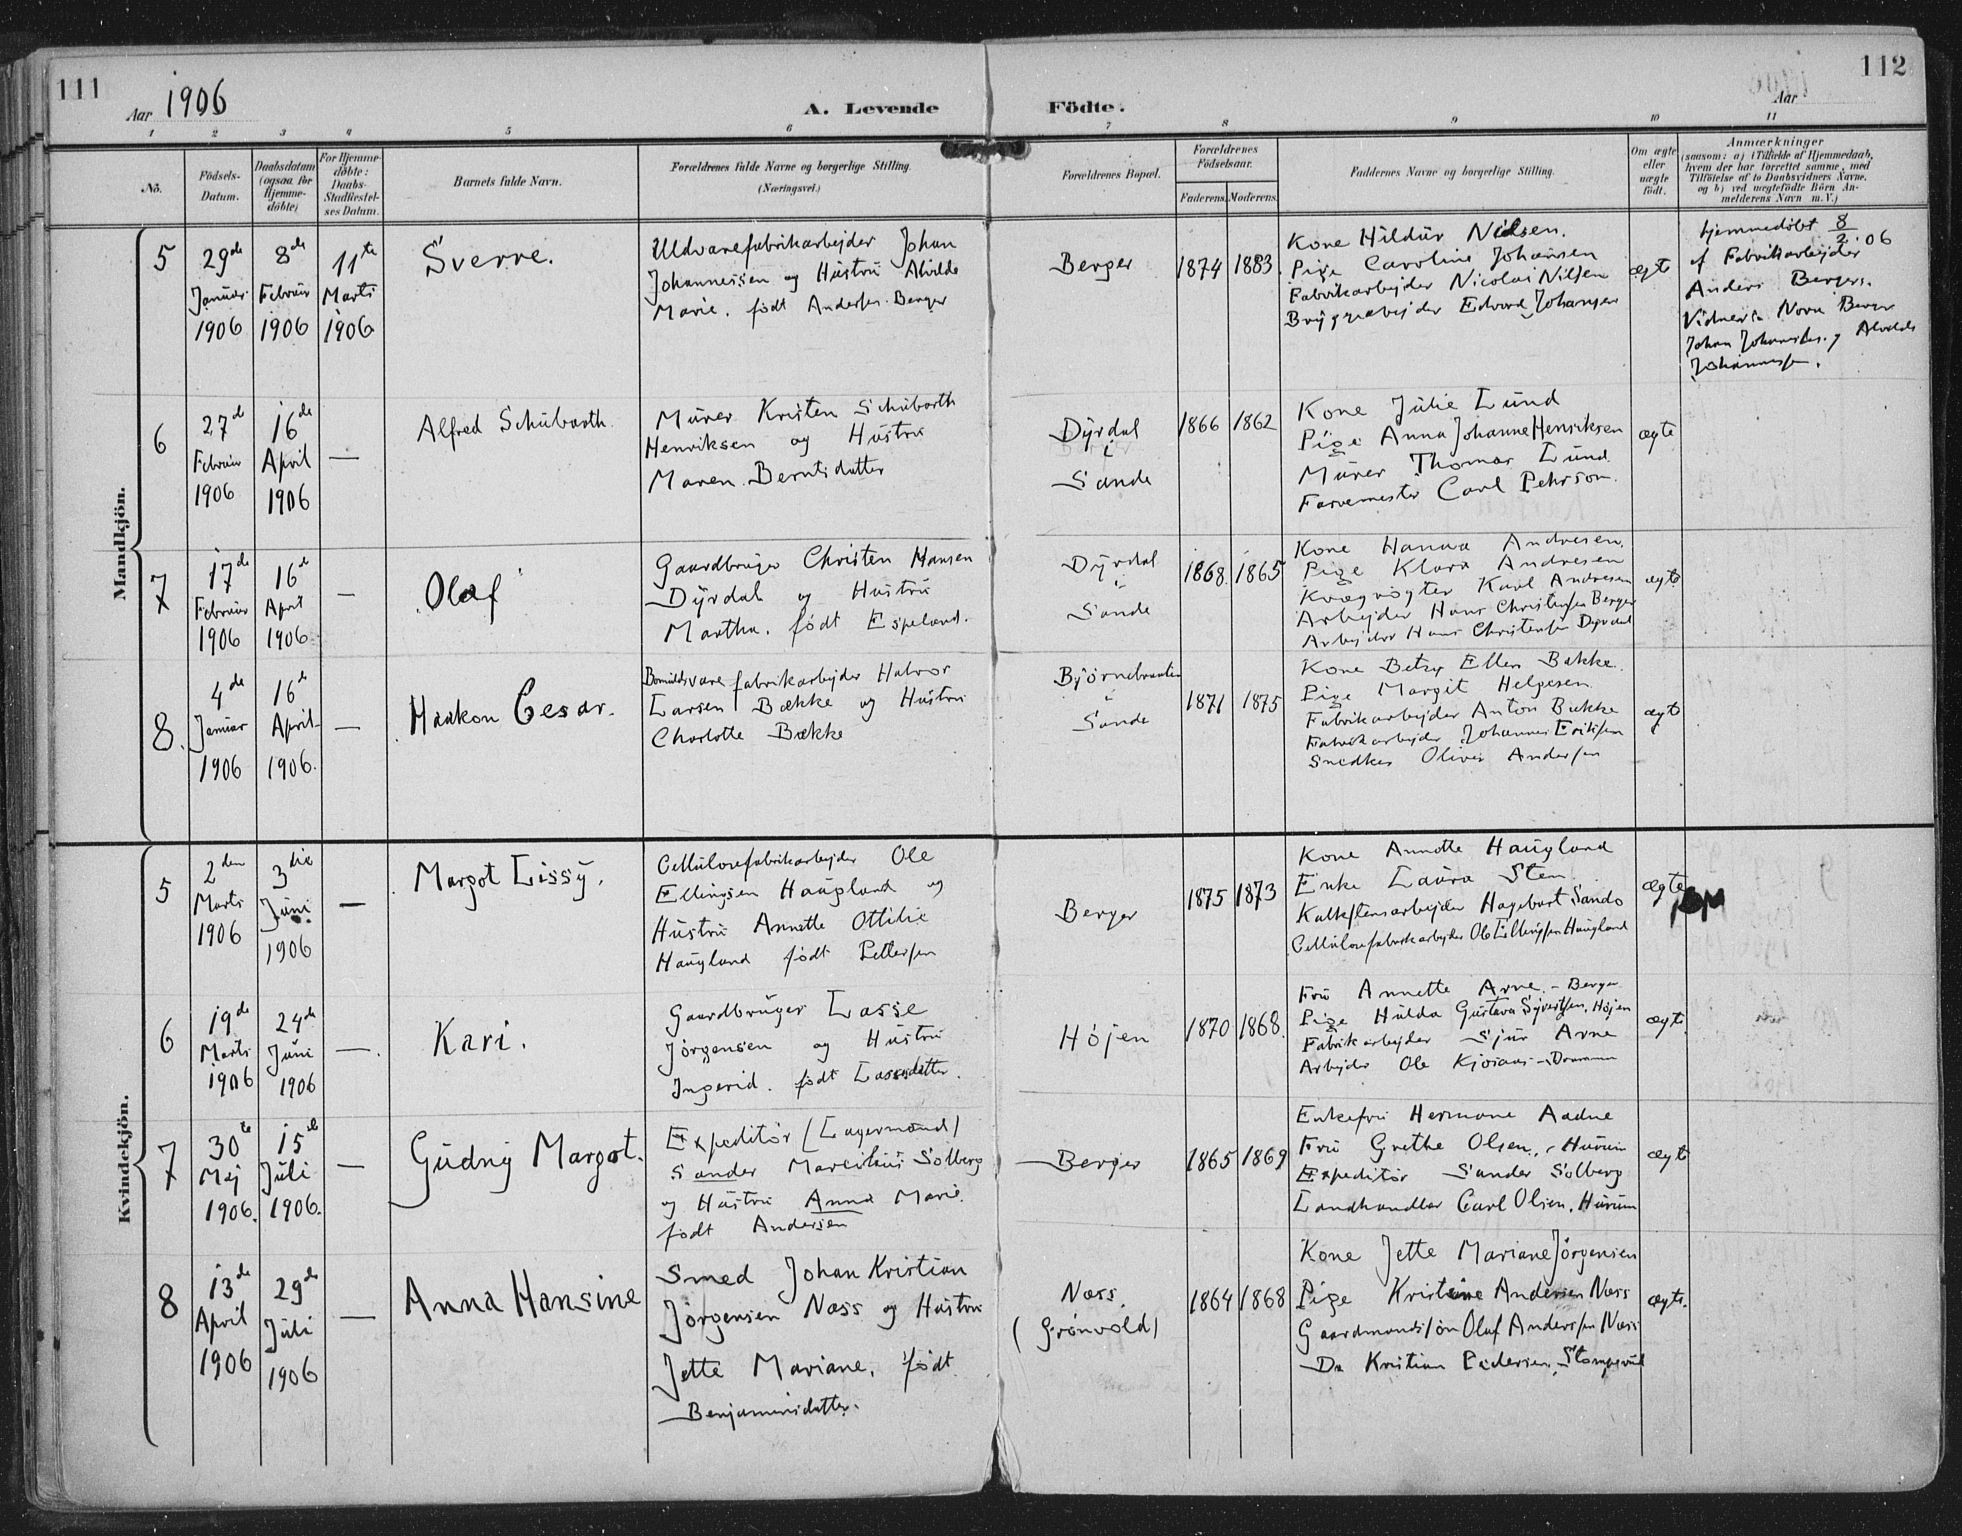 111
Aar 1906
A. Levende Födte.
Aar
112
1 2 3 4 5 6 7 8 9 10 11
No.
Födsels-
Datum.
Daabsdatum
(ogsaa for
Hjemme-
döbte)
For Hjemme-
döbte:
Daabs-
Stadfæstel-
ses Datum.
Barnets fulde Navn.
Forældrenes fulde Navne og borgerlige Stilling.
(Næringsvei.)
Forældrenes Bopæl.
Forældrenes
Födselsaar.
Faderens. Moderens.
Faddernes Navne og borgerlige Stilling.
Om ægte
eller
uægte
födt.
Anmærkninger
(saasom: a) i Tilfælde af Hjemmedaab,
hvem der har forrettet samme, med
Tilföielse af to Daabsvidners Navne,
og b) ved uægtefödte Börn An-
melderens Navn m. V.)
Mandkjön.
5
29de
Januar
1906
8de
Februar
1906
11te
Marts
1906
Sverre.
Uldvarefabrikarbejder Johan
Johannessen og Hustru Alvilde
Marie, født Andersen. Berger
Berger
1874 1883.
Kone Hildur Nilsen.
Pige Caroline Johansen
Fabrikarbejder Nicolai Nilsen
Bryggearbejder Edvard Johansen
ægte
hjemmedøbt 8/2 06
af Fabrikarbejder
Anders Bergers.
Vidner: Nora Berger
Johan Johannessen og Alvilde
Johannessen.
6
27de
Februar
1906
16de
April
1906
—
Alfred Schubarth.
Murer Kristen Schubarth
Henriksen og Hustru
Maren Berntsdatter
Dyrdal
i
Sande
1866 1862
Kone Julie Lund
Pige Anna Johanne Henriksen
Murer Thomas Lund.
Farvemester Carl Pehrson.
ægte
7
17de
Februar
1906
16de
April
1906
—
Olaf
Gaardbruger Christen Hansen
Dyrdal og Hustru
Martha, født Espeland.
Dyrdal
i
Sande
1868. 1865
Kone Hanna Andresen.
Pige Klara Andresen
Kvægrøgter Karl Andresen
Arbejder Hans Christensen Berger
Arbejder Hans Christensen Dyrdal
ægte
8.
4de
Januar
1906
16de
April
1906.
—
Haakon Cesar.
Bomuldsvarefabrikarbejder Halvor
Larsen Bække og Hustru
Charlotte Bække
Bjørnebraaten
i
Sande
1871 1875
Kone Betzy Ellen Bakke.
Pige Margit Helgesen
Fabrikarbejder Anton Bakke
Fabrikarbejder Johannes Eriksen
Snedker Oliver Andersen
ægte
Kvindekjön.
5
2den
Marts
1906
3die
Juni
1906
—
Margot Lissy.
Cellulosefabrikarbejder Ole
Ellingsen Haugland og
Hustru Annette Ottilie
Haugland født Pettersen
Berger
1875 1873
Kone Annette Haugland
Enke Laura Sten
Kalkstensarbejder Hagebart Sando
Cellulosefabrikarbejder Ole Ellingsen Haugland
ægte
6
19de
Marts
1906
24de
Juni
1906
—.
Kari.
Gaardbruger Lasse
Jørgensen og Hustru
Ingerid, født Lassesdatter.
Højen
1870 1868.
Fru Annette Arne – Berger
Pige Hulda Gustava Syvertsen, Højen
Fabrikarbejder Sjur Arne
Arbejder Ole Kjosaas – Drammen
ægte.
7
30te
Maj
1906.
15de
Juli
1906.
—
Gudny Margot.
Expeditør (Lagermand)
Sander Marcilius Solberg
og Hustru Anna Marie.
født Andersen
Berger
1865 1869
Enkefru Hermane Aadne
Fru Grethe Olsen, Hurum
Expeditør Sander Solberg
Landhandler Carl Olsen, Hurum
ægte
8
13de
April
1906
29de
Juli
1906
—
Anna Hansine
Smed Johan Kristian
Jørgensen Næss og Hustru
Jette Mariane, født
Benjaminsdatter.
Næss.
(Grønvold)
1864 1868
Kone Jette Mariane Jörgensen
Pige Kristine Andersen Næss
Gaardmandssøn Olaf Anderssen Næss
Do Kristian Pedersen
ægte.